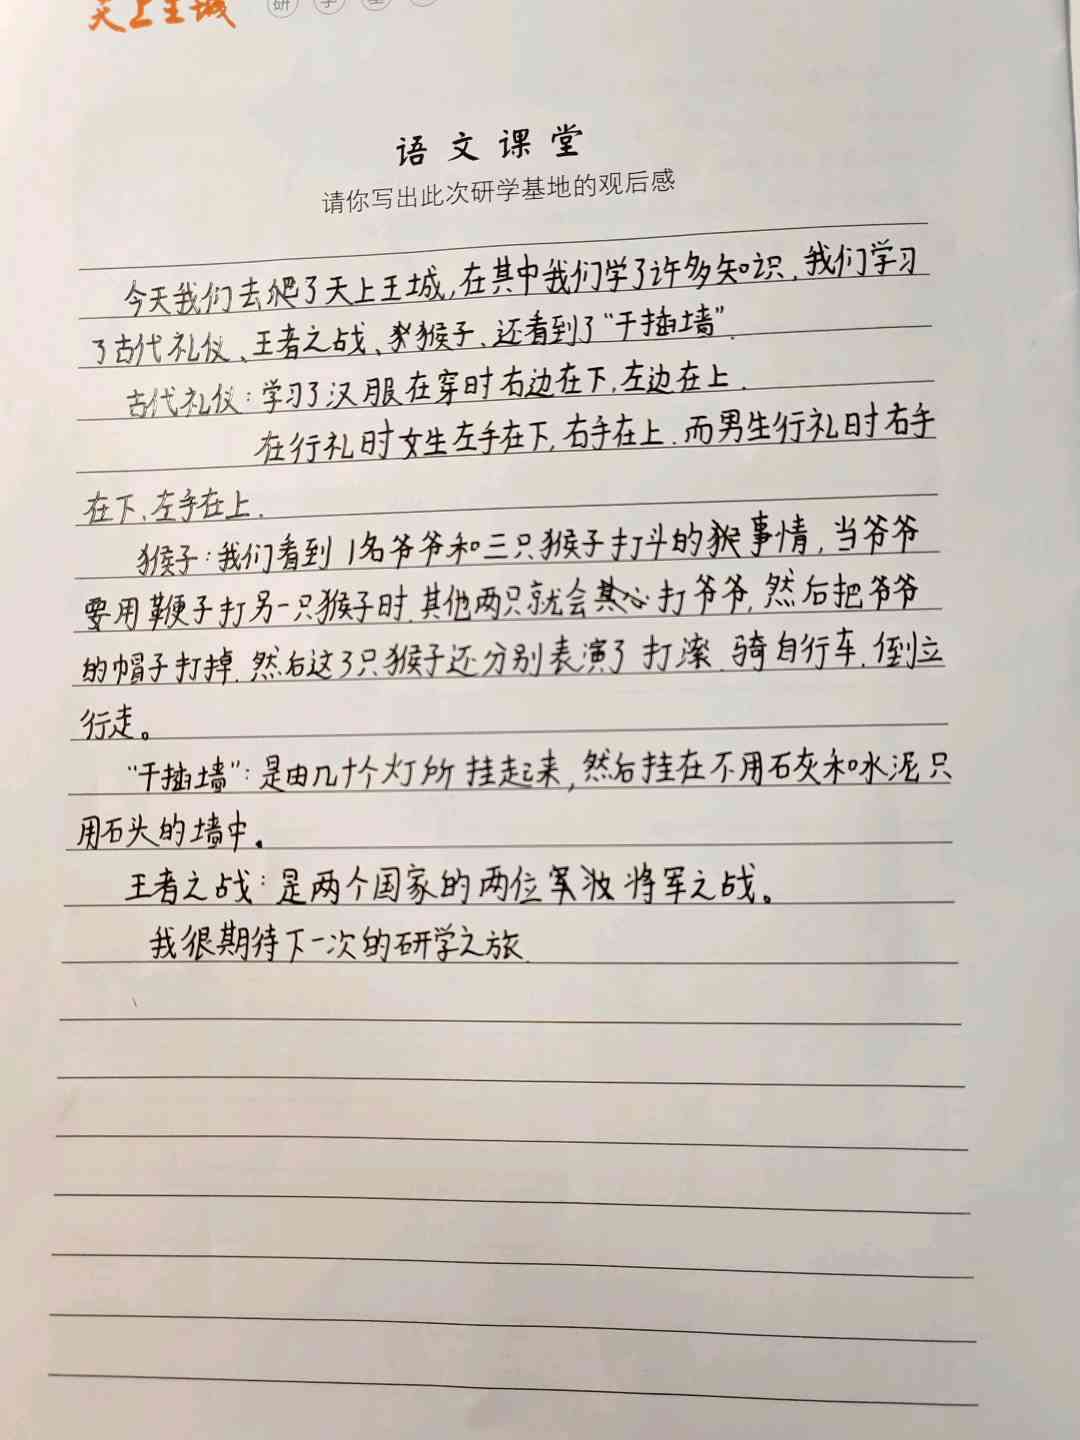 天上王城 研学基
语文课堂
请你写出此次研学基地的观后感
今天我们去爬了天上王城,在其中我们学了许多知识,我们学习
了古代礼仪、王者之战、猴子、还看到了“干插墙”.
古代礼仪:学习了汉服在穿时右边在下,左边在上.
在行礼时女生左手在下,右手在上.而男生行礼时右手
在下,左手在上.
猴子:我们看到1名爷爷和三只猴子打斗的事情,当爷爷
要用鞭子打另一只猴子时.其他两只就会打爷爷,然后把爷爷
的帽子打掉.然后这了只猴子还分别表演了打滚.骑自行车.倒立
行走。
“干插墙”:是由几十个灯所挂起来,然后挂在不用石灰和水泥只
用石头的墙中。
王者之战:是两个国家的两位将军之战。
我很期待下一次的研学之旅.